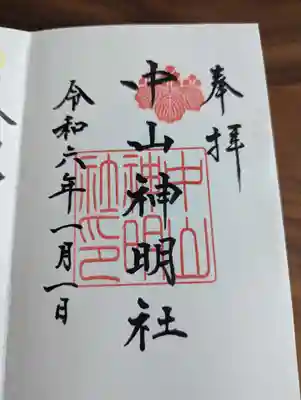 奉拝
中山神明社
中山神明社印
令和六年一月一日